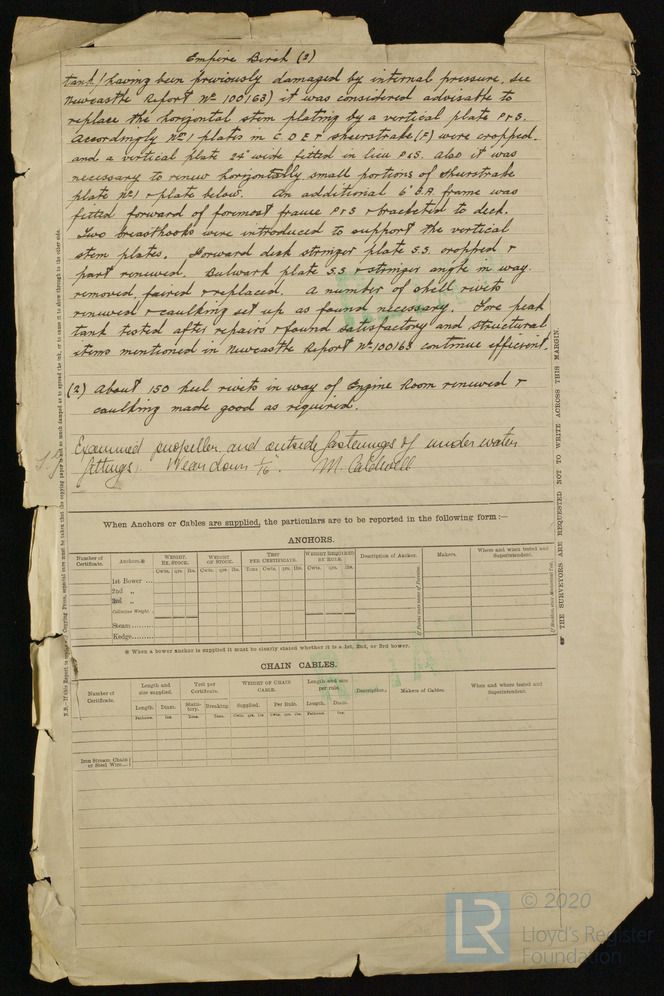 Empire Birch (2)
tank (having been previously damaged by internal pressure. See
Newcastle Report No 100163) it was considered advisable to
replace the horizontal stem plating by a vertical plate P&S.
Accordingly No 1 plates in C D E & sheerstrake (F) were cropped
and a vertical plate 24" wide fitted in lieu P&S. Also it was
necessary to renew horizontally small portions of sheerstrake
plate No 1 & plate below. An additional 6" B.A. frame was
fitted forward of foremost frame P&S & bracketed to deck.
Two breasthooks were introduced to support the vertical
stem plates. Forward deck stringer plate S.S. cropped &
part renewed. Bulwark plate S.S & stringer angle in way
removed faired & replaced. A number of shell rivets
renewed & caulking set up as found necessary. Fore peak
tank tested after repairs & found satisfactory and structural
items mentioned in Newcastle Report No 100163 continue efficient.
(2) About 150 keel rivets in way of Engine Room renewed &
caulking made good as required.
Examined propeller and outside fastenings of under water
fittings. Wear down 1/16". M. Caldwell
When Anchors or Cables are supplied, the particulars are to be reported in the following form :—
ANCHORS.
Number of Certificate. Anchors.* WEIGHT. EX. STOCK. WEIGHT OF STOCK. TEST PER CERTIFICATE. WEIGHT REQUIRED BY RULE. Description of Anchor. Makers. Where and when tested and Superintendent.
Cwts. qrs. lbs. Cwts. qrs. lbs. Tons Cwts. qrs. lbs. Cwts. qrs. lbs.
1st Bower ...
2nd „
3rd „
Collective Weight
Stream
Kedge
* When a bower anchor is supplied it must be clearly stated whether it is a 1st, 2nd, or 3rd bower.
CHAIN CABLES.
Number of Certificate. Length and size supplied. Test per Certificate. WEIGHT OF CHAIN CABLE. Length and size per rule. Description. Makers of Cables. When and where tested and Superintendent.
Length. Diam. Statutory. Breaking. Supplied. Per Rule. Length. Diam.
Fathoms. Ins. Tons. Tons. Cwts. qrs. lbs. Cwts. qrs. lbs. Fathoms. Ins.
Iron Stream Chain or Steel Wire
THE SURVEYORS ARE REQUESTED NOT TO WRITE ACROSS THIS MARGIN.
LR
© 2020
Lloyd's Register
Foundation